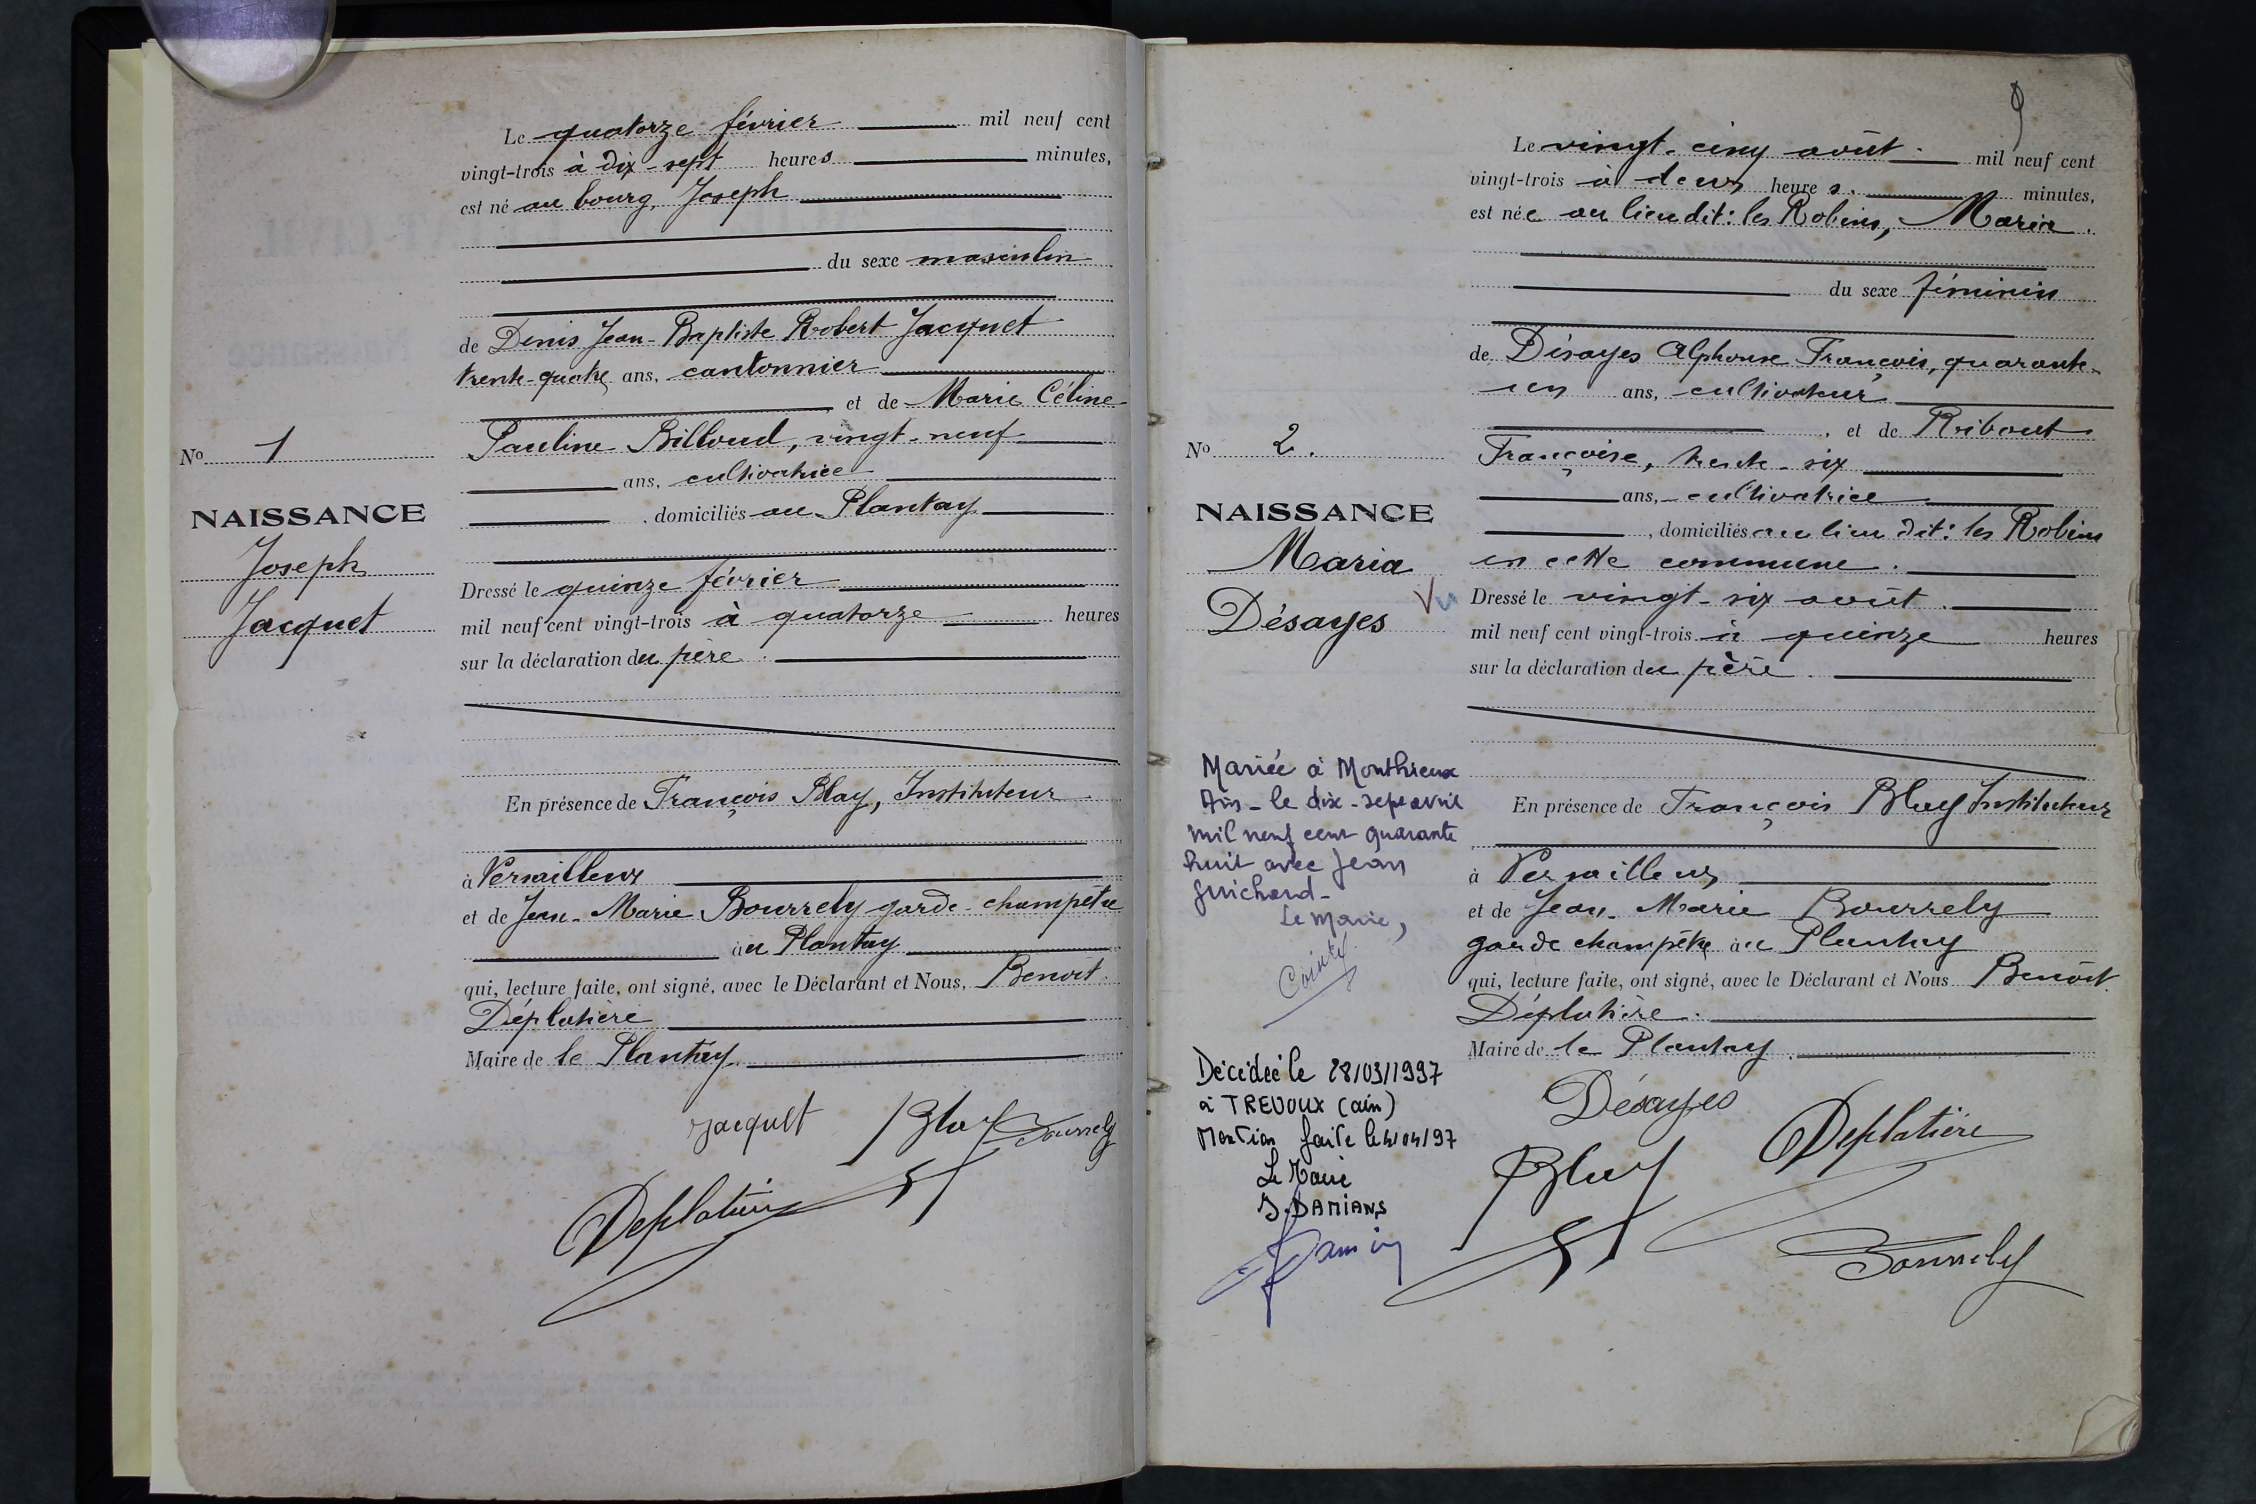 Le quatorze février mil neuf cent
vingt-trois à dix-sept heures minutes,
est né au bourg, Joseph
du sexe masculin
de Denis Jean-Baptiste Robert Jacquet
trente-quatre ans, cantonnier
et de Marie Céline
Pauline Billoud, vingt-neuf
ans, cultivatrice
, domiciliés au Plantay
Dressé le quinze février
mil neuf cent vingt-trois à quatorze heures
sur la déclaration du père
En présence de François Bluy, Instituteur
à Versailleux
et de Jean-Marie Bourrely garde-champêtre
au Plantay
qui, lecture faite, ont signé, avec le Déclarant et Nous, Benoît
Déplatière
Maire de le Plantay
Jacquet Bluy Bourrely
Deplatière
No 1
NAISSANCE
Joseph
Jacquet
9
Le vingt-cinq août mil neuf cent
vingt-trois à deux heures. minutes,
est née au lieu dit: les Robins, Maria.
du sexe féminin
de Désayes Alphonse François, quarante-
un ans, cultivateur
, et de Ribout
Françoise, trente-six
ans, cultivatrice
, domiciliés au lieu dit: les Robins
en cette commune.
Dressé le vingt-six août.
mil neuf cent vingt-trois à quinze heures
sur la déclaration du père.
En présence de François Bluy Instituteur
à Versailleux
et de Jean-Marie Bourrely
garde champêtre au Plantay
qui, lecture faite, ont signé, avec le Déclarant et Nous Benoît
Déplatière.
Maire de le Plantay.
Désayes
Bluy Deplatière
Bourrely
No 2.
NAISSANCE
Maria
Désayes
Vu
Mariée à Monthieux
Ain - le dix-sept avril
mil neuf cent quarante
huit avec Jean
Guichard -
Le Maire,
Décédée le 28/03/1997
à TREVOUX (ain)
Mention faite le 4/04/97
Le Maire
J. DAMIANS